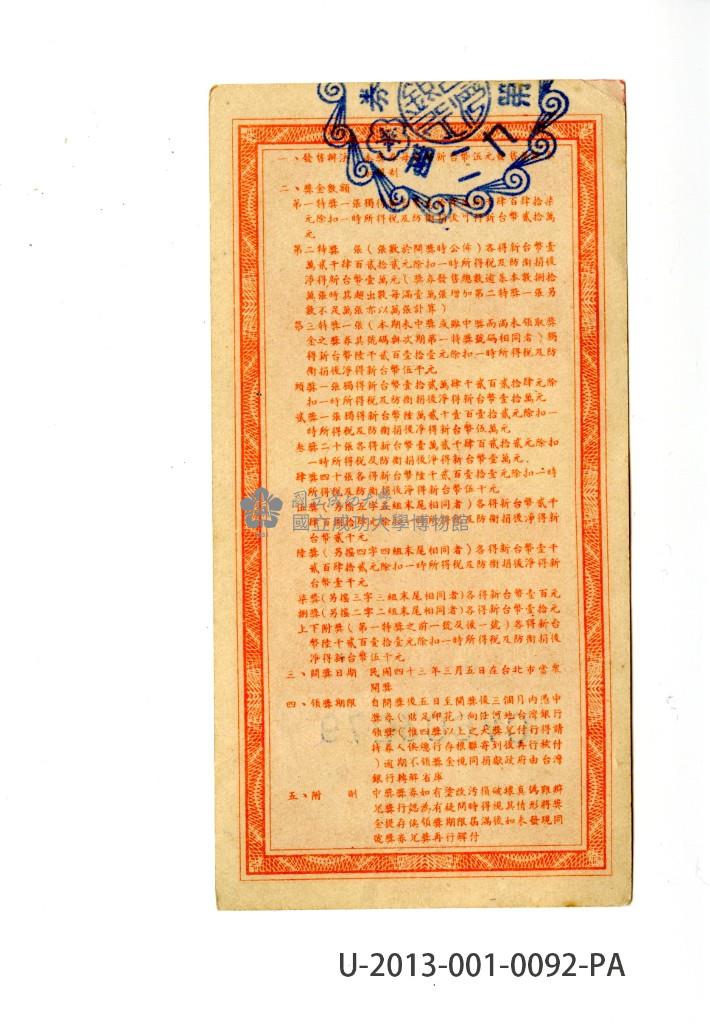 一、發售辦法
二、獎金數額
第一特獎一張獨得
元除扣一時所得稅及防衛捐後可得新台幣貳拾萬
元
第二特獎 張(張數於開獎時公佈)各得新台幣壹
萬貳千肆百貳拾貳元除扣一時所得稅及防衛捐後
淨得新台幣壹萬元(獎券發售總數逾券本數捌拾
萬張時其超出數每滿壹萬張增加第二特獎一張另
數不足萬張亦以萬張計算)
第三特獎一張(本期未中獎或雖中獎而尚未領取獎
金之獎券其號碼與次期第一特獎號碼相同者)獨
得新台幣陸千貳百壹拾壹元除扣一時所得稅及防
衛捐後淨得新台幣伍千元
頭獎一張獨得新台幣壹拾貳萬肆千貳百貳拾肆元除
扣一時所得稅及防衛捐後淨得新台幣壹拾萬元
貳獎一張獨得新台幣陸萬貳千壹百壹拾貳元除扣一
時所得稅及防衛捐後淨得新台幣伍萬元
叁獎二十張各得新台幣壹萬貳千肆百貳拾貳元除扣
一時所得稅及防衛捐後淨得新台幣壹萬元
肆獎四十張各得新台幣陸千貳百壹拾壹元除扣一時
所得稅及防衛捐後淨得新台幣伍千元
伍獎(另搖五字五組末尾相同者)各得新台幣貳千
肆百捌拾元除扣一時所得稅及防衛捐後淨得新
台幣貳千元
陸獎(另搖四字四組末尾相同者)各得新台幣壹千
貳百肆拾貳元除扣一時所得稅及防衛捐後淨得新
台幣壹千元
柒獎(另搖三字三組末尾相同者)各得新台幣壹百元
捌獎(另搖二字二組末尾相同者)各得新台幣壹拾元
上下附獎(第一特獎之前一號及後一號)各得新台
幣陸千貳百壹拾壹元除扣一時所得稅及防衛捐後
淨得新台幣伍千元
三、開獎日期 民國四十三年三月五日在台北市當衆
開獎
四、領獎期限 自開獎後五日至開獎後三個月內憑中
獎券(貼足印花)向任何地台灣銀行
領獎(惟四獎以上之大獎兌付行得請
持券人俟總行存根聯寄到後再行核付
)逾期不領獎金視同捐獻政府由台灣
銀行轉解省庫
五、附則 中獎獎券如有塗改污損破壞真偽難辨
兌獎行認為有疑問時得視其情形將獎
金提存俟領獎期限屆滿後如未發現同
號獎券兌獎再行解付
國立成功大學
國立成功大學博物館
U-2013-001-0092-PA